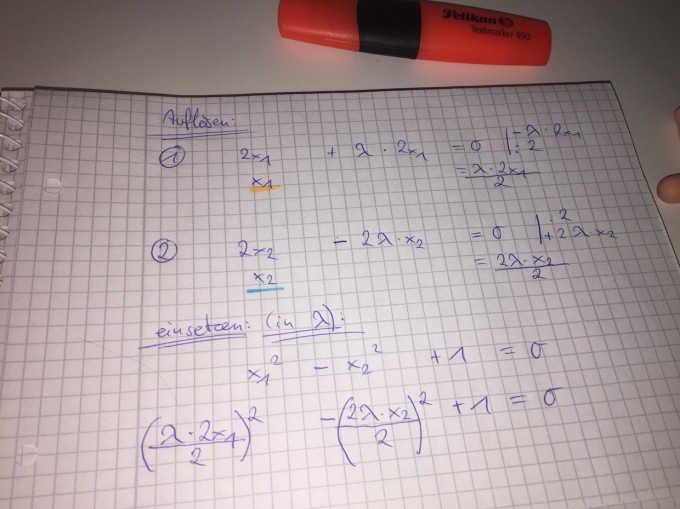 Pelikan
Textmarker 490
Auflösen:
① 2x₁ + λ · 2x₁ = 0 | -λ · 2x₁ : 2
x₁ = λ · 2x₁ / 2
② 2x₂ - 2λ · x₂ = 0 | : 2 +2λ · x₂
x₂ = 2λ · x₂ / 2
einsetzen: (in λ):
x₁² - x₂² + 1 = 0
(λ · 2x₁ / 2)² - (2λ · x₂ / 2)² + 1 = 0